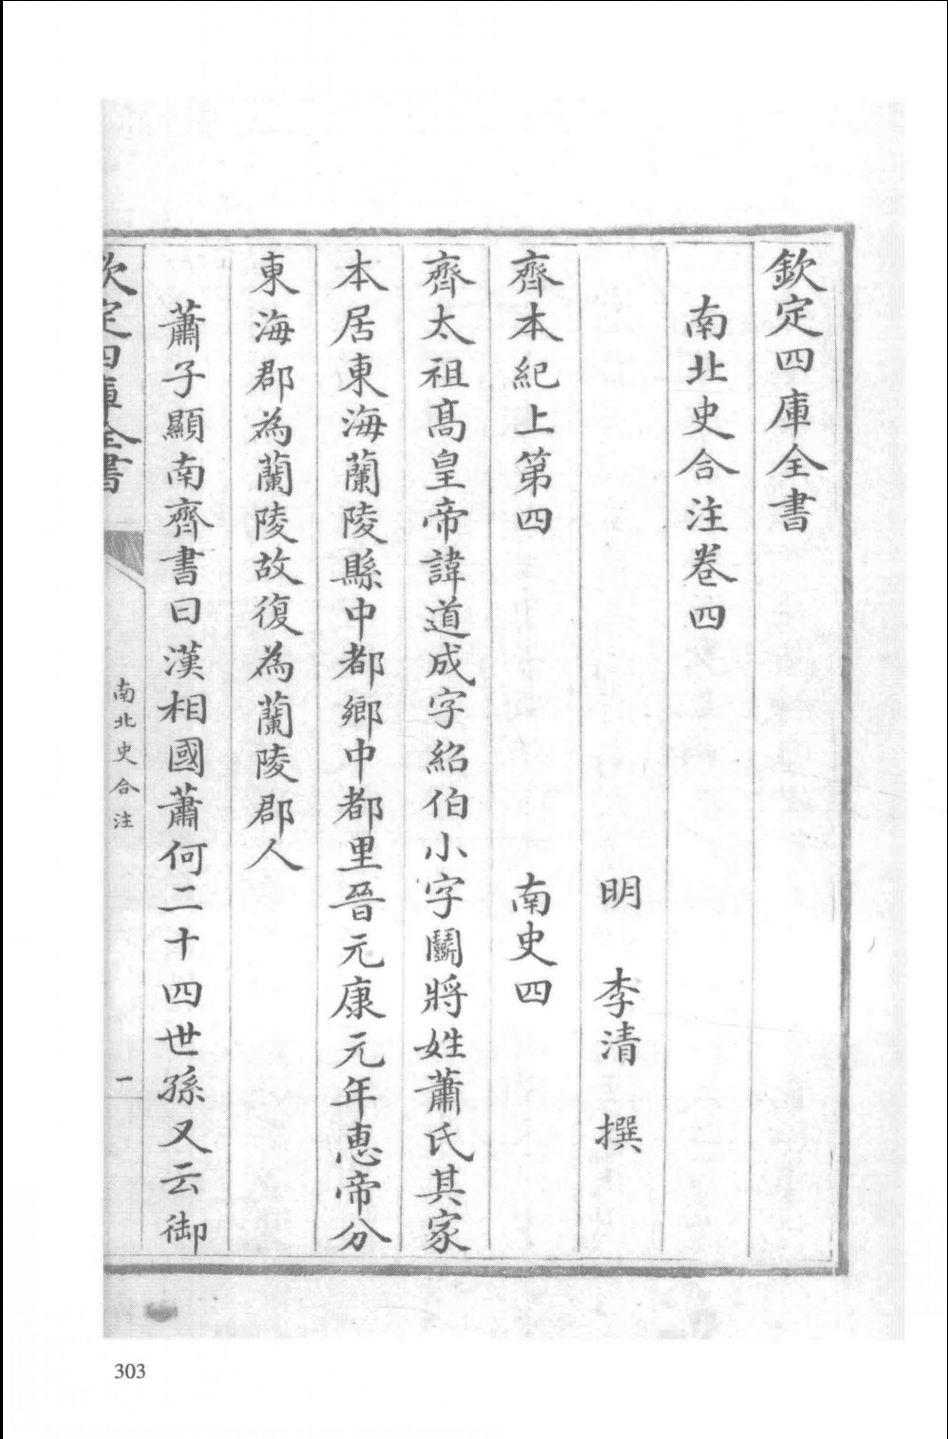 欽定四庫全書
南北史合注卷四
明 李清 撰
齊本紀上第四 南史四
齊太祖髙皇帝諱道成字紹伯小字鬭將姓蕭氏其家
本居東海蘭陵縣中都鄉中都里晉元康元年惠帝分
東海郡為蘭陵故復為蘭陵郡人
蕭子顯南齊書曰漢相國蕭何二十四世孫又云御
欽定四庫全書
南北史合注
一
303